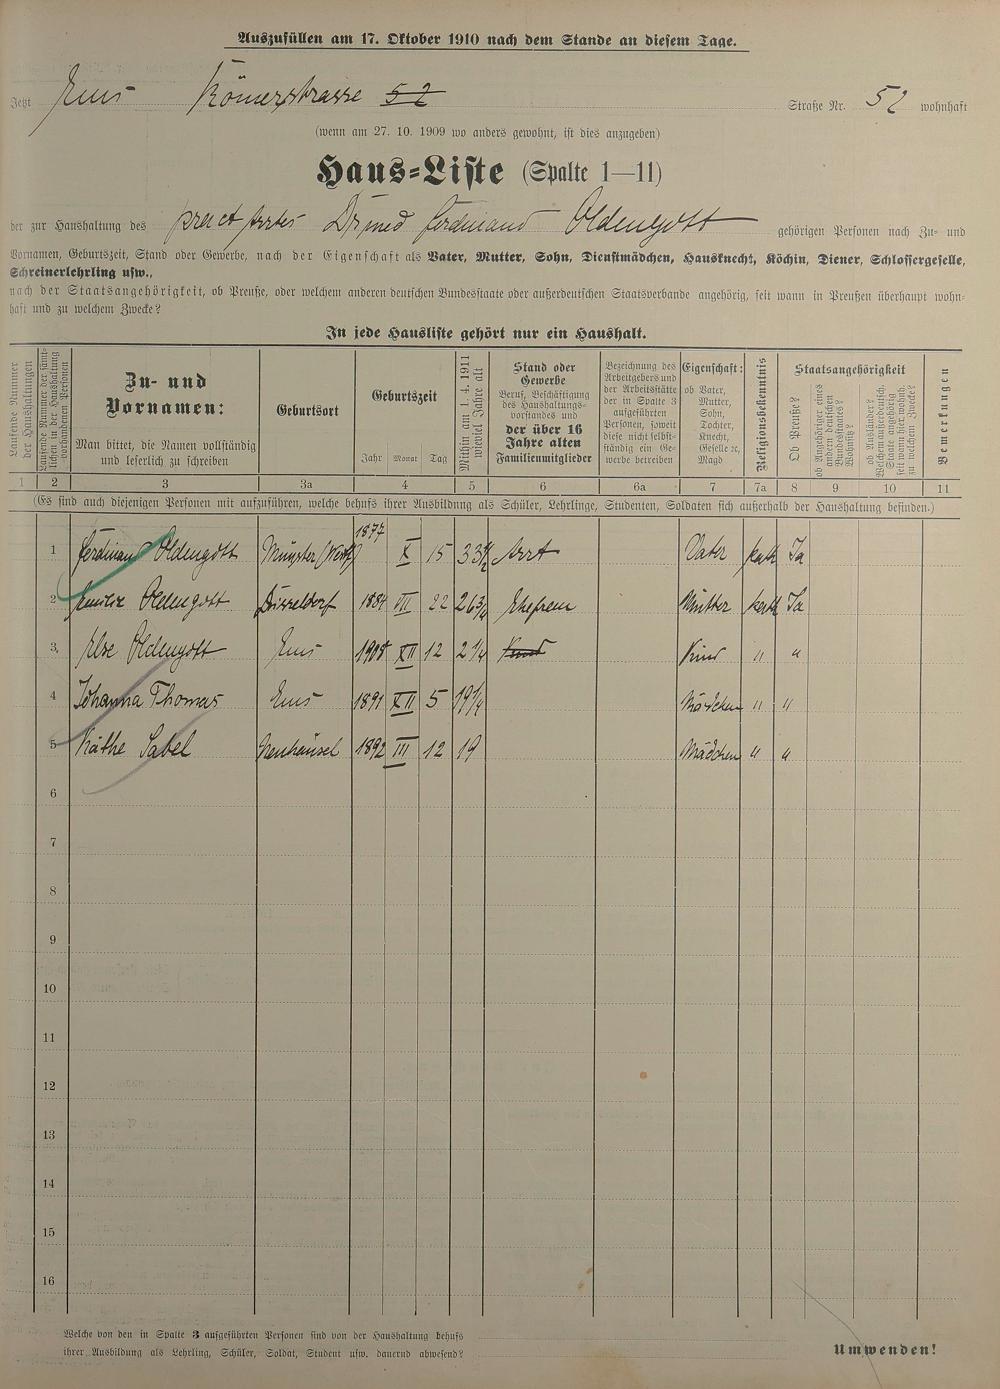 Auszufüllen am 17. Oktober 1910 nach dem Stande an diesem Tage.
Jetzt Ems Römerstrasse 52 Straße Nr. 52 wohnhaft
(wenn am 27. 10. 1909 wo anders gewohnt, ist dies anzugeben)
Haus=Liste (Spalte 1—11)
der zur Haushaltung des pract Arztes Dr med Ferdinand Oldengott gehörigen Personen nach Zu= und
Vornamen, Geburtszeit, Stand oder Gewerbe, nach der Eigenschaft als Vater, Mutter, Sohn, Dienstmädchen, Hausknecht, Köchin, Diener, Schlossergeselle,
Schreinerlehrling usw.,
nach der Staatsangehörigkeit, ob Preuße, oder welchem anderen deutschen Bundesstaate oder außerdeutschen Staatsverbande angehörig, seit wann in Preußen überhaupt wohn=
haft und zu welchem Zwecke?
In jede Hausliste gehört nur ein Haushalt.
Laufende Nummer
der Haushaltungen
Laufende Nummer der sämt=
lichen in der Haushaltung
vorhandenen Personen
Zu= und
Vornamen:
Man bittet, die Namen vollständig
und leserlich zu schreiben
Geburtsort
Geburtszeit
Jahr Monat Tag
Mithin am 1. 4. 1911
wieviel Jahre alt
Stand oder
Gewerbe
Beruf, Beschäftigung
des Haushaltungs=
vorstandes und
der über 16
Jahre alten
Familienmitglieder
Bezeichnung des
Arbeitgebers und
der Arbeitsstätte
der in Spalte 3
aufgeführten
Personen, soweit
diese nicht selbst=
ständig ein Ge=
werbe betreiben
Eigenschaft:
ob Vater,
Mutter,
Sohn,
Tochter,
Knecht,
Geselle ꝛc,
Magd
Religionsbekenntnis
Staatsangehörigkeit
Ob Preuße?
ob Angehöriger eines
andern deutschen
Bundesstaates?
Wohnsitz?
ob Ausländer?
Welchem außerdeutsch.
Staate angehörig
seit wann hier wohnh.
zu welchem Zwecke?
Bemerkungen
1 2 3 3a 4 5 6 6a 7 7a 8 9 10 11
(Es sind auch diejenigen Personen mit aufzuführen, welche behufs ihrer Ausbildung als Schüler, Lehrlinge, Studenten, Soldaten sich außerhalb der Haushaltung befinden.)
1 Ferdinand Oldengott Münster (Westf) 1877 X 15 33½ Arzt Vater kath Ja
2 Oldengott Düsseldorf 1884 VII 22 26¾ Ehefrau Mutter kath Ja
3, Else Oldengott Ems 1908 XII 12 2¼ Kind Kind " "
4 Johanna Thomas Ems 1891 XII 5 19¼ Mädchen " "
5 Käthe Sabel Neuhäusel 1892 III 12 19 Mädchen " "
6
7
8
9
10
11
12
13
14
15
16
Welche von den in Spalte 3 aufgeführten Personen sind von der Haushaltung behufs
ihrer Ausbildung als Lehrling, Schüler, Soldat, Student usw. dauernd abwesend?
Umwenden!